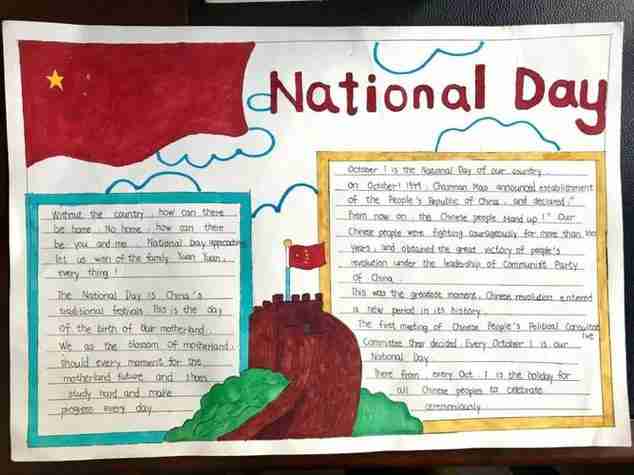 National Day
Without the country, how can there
be home. No home, how can there
be you and me. National Day approaching
let us won of the family Yuan Yuan,
every thing!
The National Day is China's
traditional festivals. This is the day
of the birth of our motherland.
We as the blossom of motherland,
should every moment for the
motherland future and
study hard and make
progress every day.
October 1 is the National Day of our country.
on October 1 1949, Chairman Mao announced establishment
of the People's Republic of China, and declared:"
From now on, the Chinese people stand up!" Our
Chinese people were fighting courageously for more than
years, and obtained the great victory of people's
revolution under the leadership of Communist Party
of China.
This was the greatest moment, Chinese revolution entered
a new period in its history.
The first meeting of Chinese People's Political Consultative
Committee then decided, Every October 1 is our
National Day.
There from, every Oct. 1 is the holiday for
all Chinese peoples to celebrate
ceremoniously.